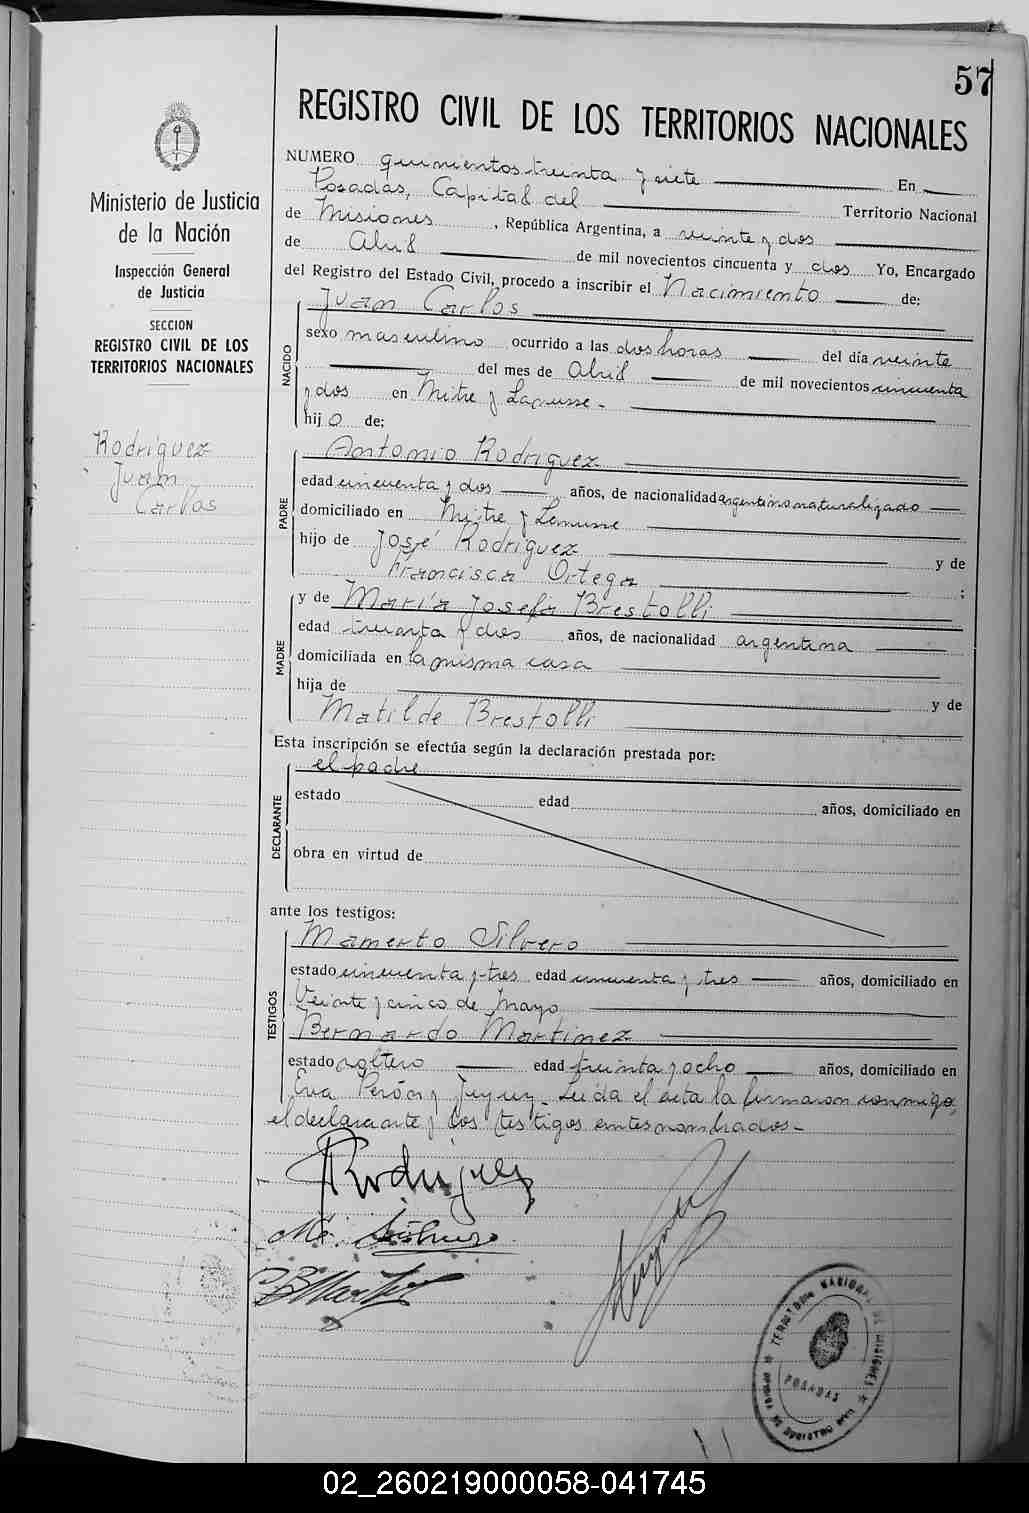 57
REGISTRO CIVIL DE LOS TERRITORIOS NACIONALES
Ministerio de Justicia
de la Nación
Inspección General
de Justicia
SECCION
REGISTRO CIVIL DE LOS
TERRITORIOS NACIONALES
Rodríguez
Juan
Carlos
NUMERO quinientos treinta y siete En
Posadas, Capital del Territorio Nacional
de Misiones, República Argentina, a veinte y dos
de Abril de mil novecientos cincuenta y dos Yo, Encargado
del Registro del Estado Civil, procedo a inscribir el Nacimiento de:
NACIDO
Juan Carlos
sexo masculino ocurrido a las dos horas del día veinte
del mes de Abril de mil novecientos cincuenta
y dos en Mitre y
hijo de:
PADRE
Antonio Rodriguez
edad cincuenta y dos años, de nacionalidad argentino naturalizado
domiciliado en Mitre y
hijo de José Rodriguez y de
Francisca Ortega ;
MADRE
y de María Josefa Brestolli
edad treinta y dos años, de nacionalidad argentina
domiciliada en la misma casa
hija de y de
Matilde Brestolli
Esta inscripción se efectúa según la declaración prestada por:
DECLARANTE
el padre
estado edad años, domiciliado en
obra en virtud de
ante los testigos:
TESTIGOS
Mamerto Silvero
estado cincuenta y tres edad cincuenta y tres años, domiciliado en
Veinte y cinco de Mayo
Bernardo Martinez
estado soltero edad treinta y ocho años, domiciliado en
Eva Perón y Jujuy. Leída el acta la firmaron conmigo,
el declarante y los testigos antes nombrados-
Rodriguez
TERRITORIO NACIONAL DE MISIONES
POSADAS
02_260219000058-041745